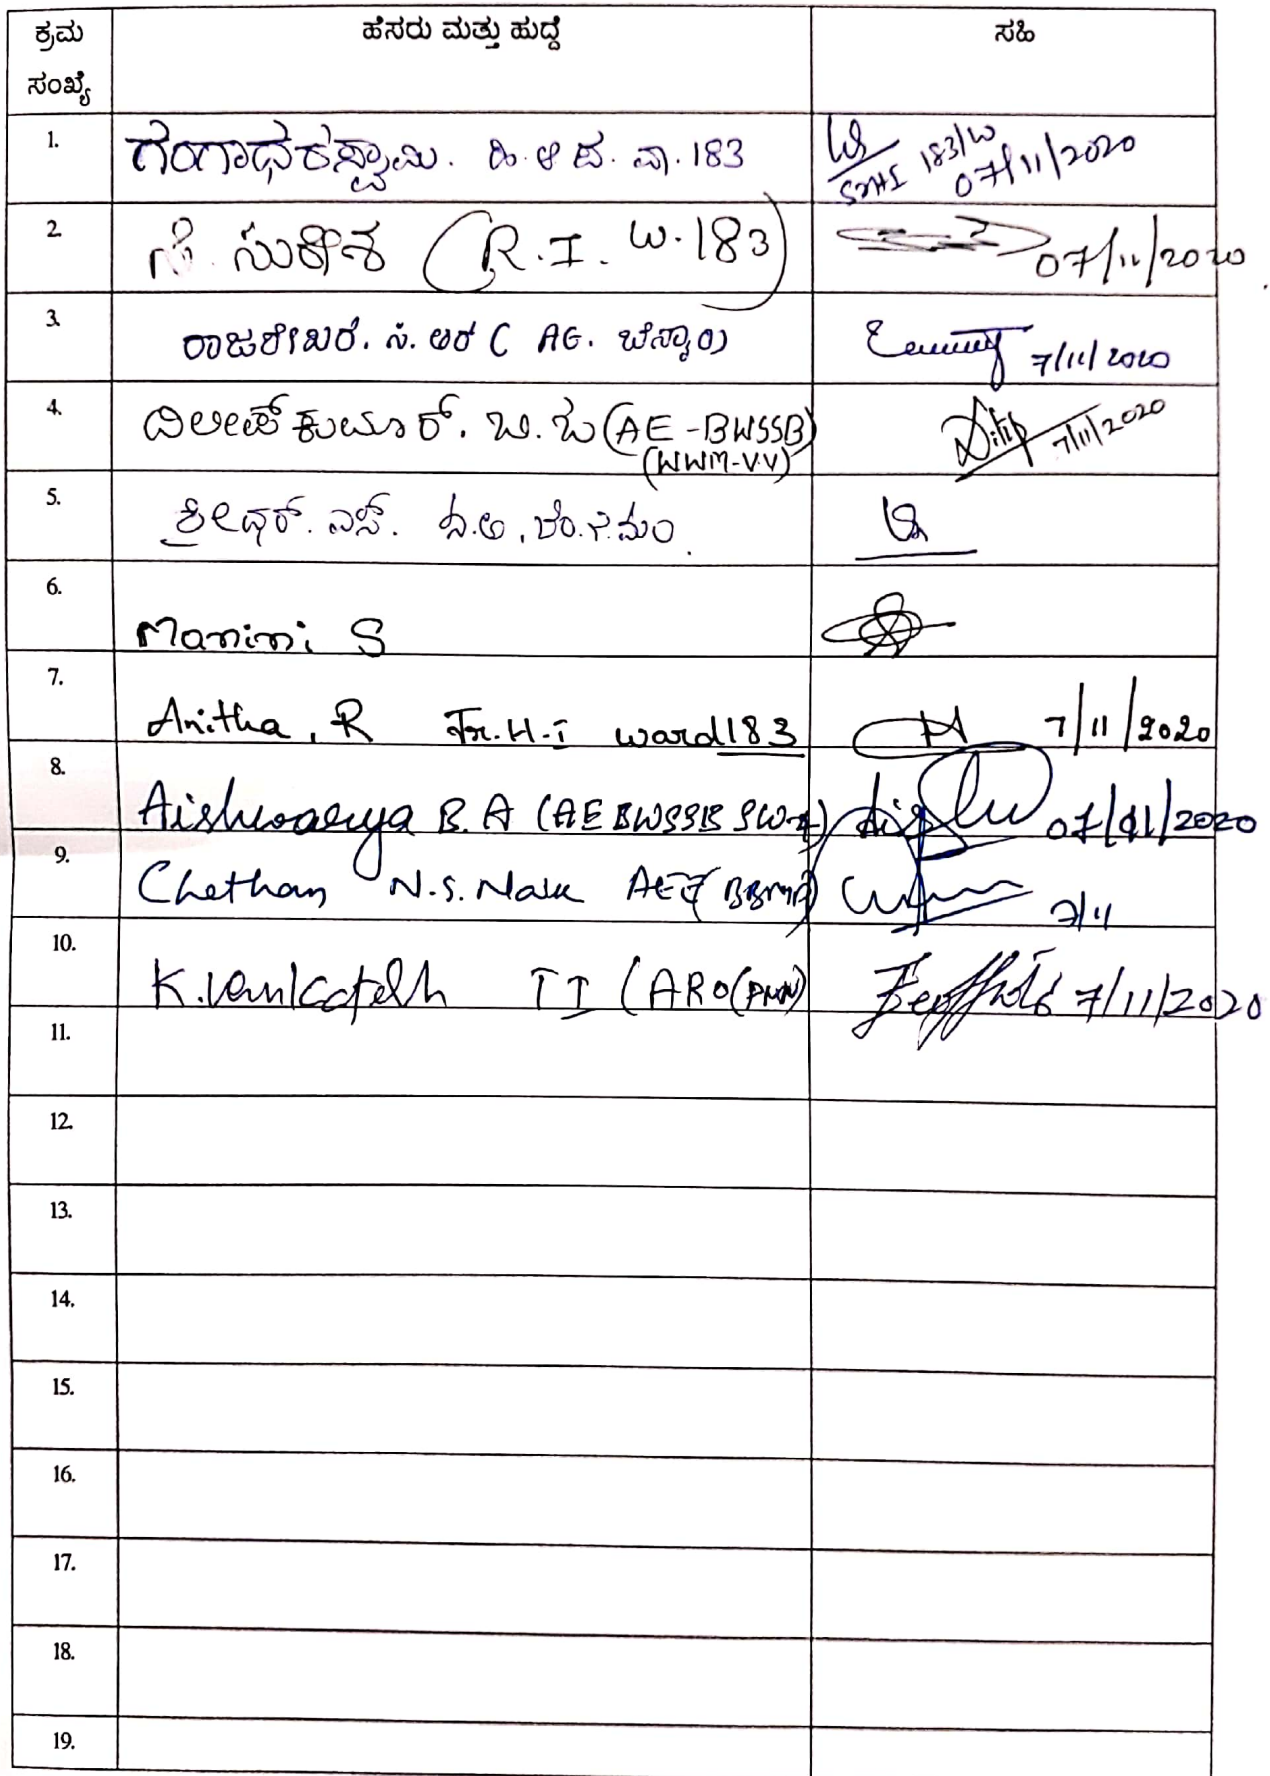 ಕ್ರಮ ಸಂಖ್ಯೆ ಹೆಸರು ಮತ್ತು ಹುದ್ದೆ ಸಹಿ
1. ಗಂಗಾಧರಸ್ವಾಮಿ. ಹಿ.ಆ.ಪ. ವಾ. 183 183/W 07/11/2020
2. ಸುರೇಶ (R.I. W. 183) 07/11/2020
3. ರಾಜಶೇಖರ. ಸಿ. ಆರ್ 7/11/2020
4. ದಿಲೀಪ್ ಕುಮಾರ್. ಬಿ. (AE - BWSSB) Dilip 7/11/2020
(WWM-V.V)
5. ಶ್ರೀಧರ್. ಎಸ್.
6. Manini S
7. Anitha. R Jr. H.I ward 183 7/11/2020
8. Aishwarya B. A (AE BWSSB SW-4) 07/11/2020
9. Chethan N.S. Naik AEE (BBMP) 7/11
10. K. Venkatesh TI (ARO 7/11/2020
11.
12.
13.
14.
15.
16.
17.
18.
19.